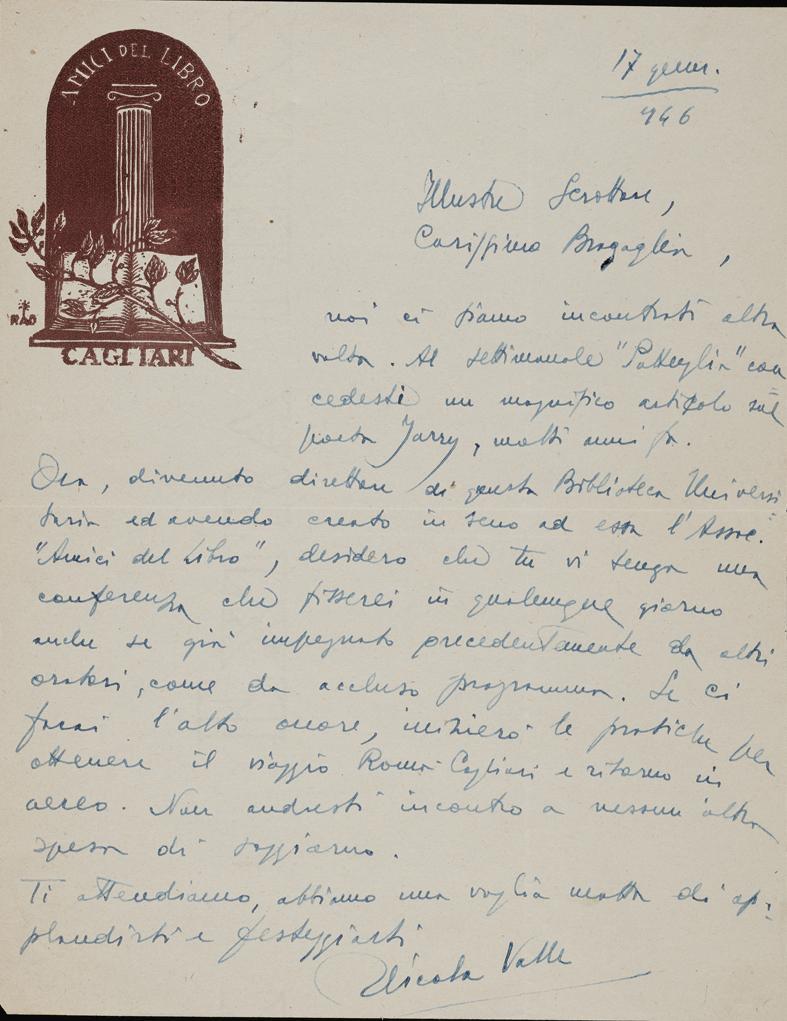 AMICI DEL LIBRO
RAO
CAGLIARI
17 genn.
946
Illustre Scrittore,
Carissimo Bragaglia,
noi ci siamo incontrati altra
volta. Al settimanale "Pattuglia" con
cedesti un magnifico articolo sul
poeta Jarry, molti anni fa.
Ora, divenuto direttore di questa Biblioteca Universi
taria ed avendo creato in seno ad essa l'Assoc.
"Amici del Libro", desidero che tu vi tenga una
conferenza che fisserei in qualunque giorno
anche se già impegnato precedentemente da altri
oratori, come da accluso programma. Se ci
farai l'alto onore, inizierò le pratiche per
ottenere il viaggio Roma-Cagliari e ritorno in
aereo. Non andresti incontro a nessun'altra
spesa di soggiorno.
Ti attendiamo, abbiamo una voglia matta di ap-
plaudirti e festeggiarti
Nicola Valle